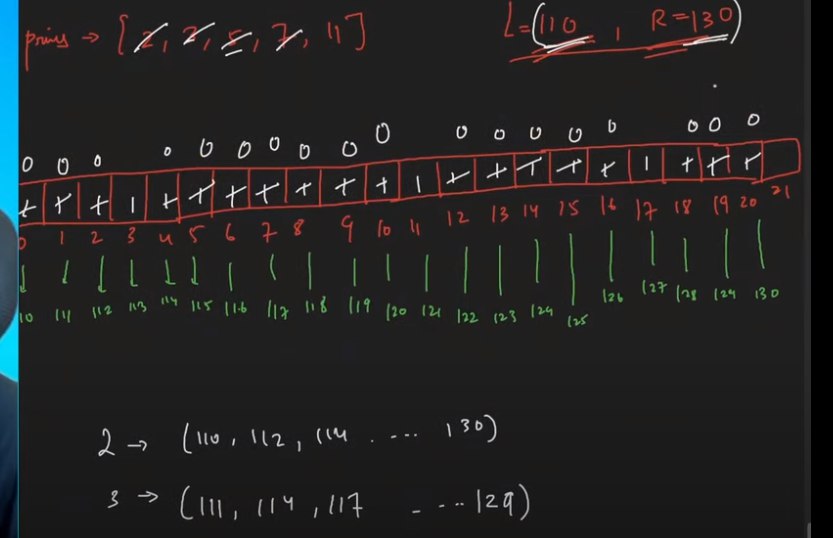 primes → [2, 3, 5, 7, 11]
L=(110 , R=130)
0 0 0 0 0 0 0 0 0 0 0 0 0 0 0 0 0 0
1 1 1 1 1 1 1 1 1 1 1 1 1 1 1 1 1 1 1 1 1
0 1 2 3 4 5 6 7 8 9 10 11 12 13 14 15 16 17 18 19 20 21
10 111 112 113 114 115 116 117 118 119 120 121 122 123 124 125 126 127 128 129 130
2 → (110, 112, 114 ..... 130)
3 → (111, 114, 117 ..... 129)